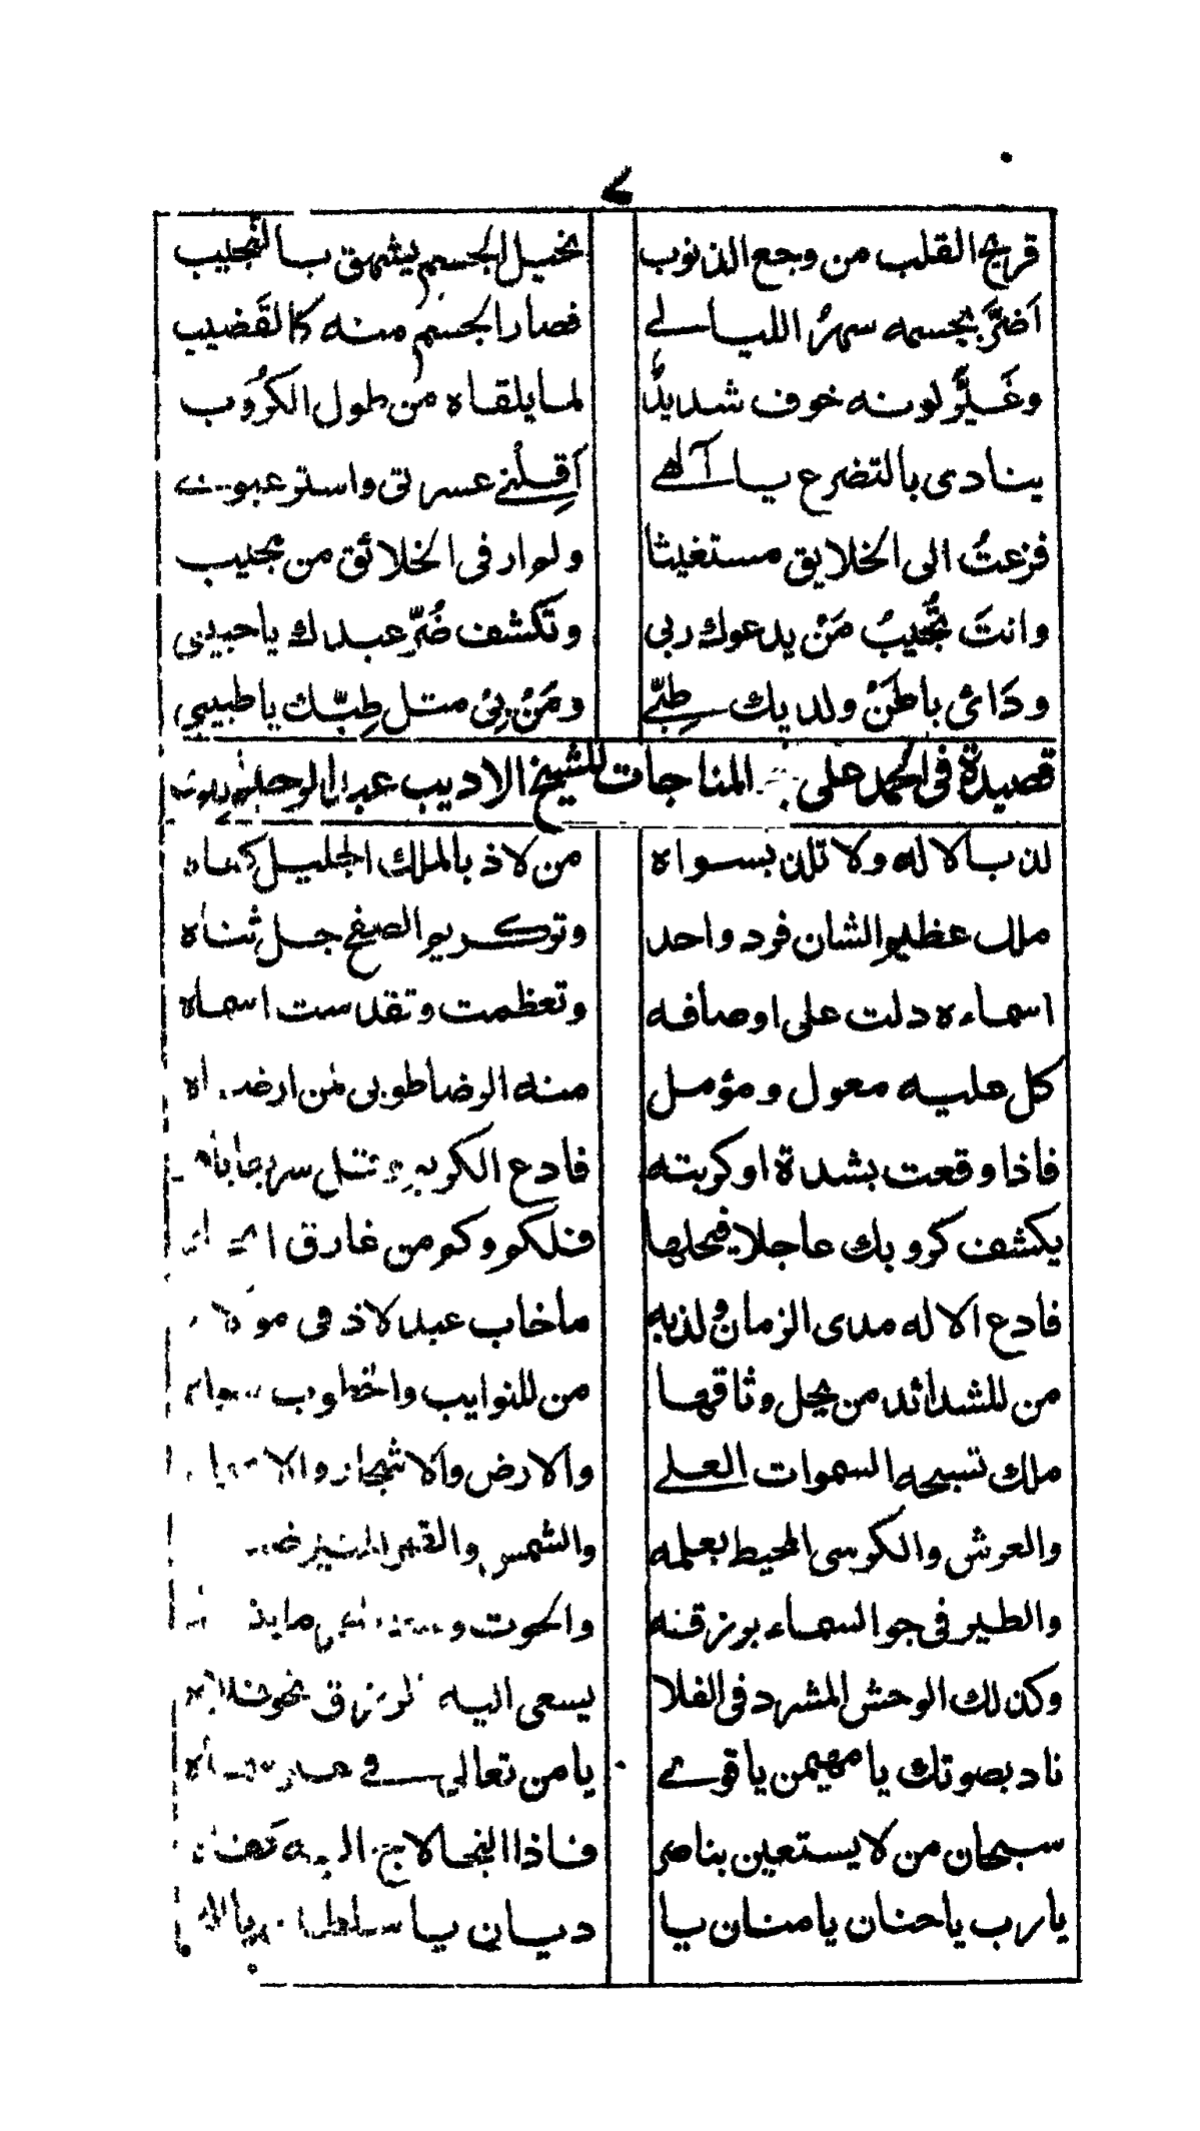 ٧
قريح القلب من وجع الذنوب نخيل الجسم يشهق بالنجيب
اَضَرَّ بجسمه سهرُ الليالے فصار الجسم منه كالقَضيب
وغَيَّر لونه خوف شديدٌ لما يلقاه من طول الكرُوب
ينادى بالتضرع يا آلهے اَقِلْنے عسرتى واستر عيوبے
فزعتُ الى الخلايق مستغيثا ولم ار فى الخلائق من مجيب
وانتَ تُجيبُ مَنْ يدعوك ربى وتكشف ضُرّ عبدك يا حبيبى
ودَائى باطنٌ ولديك طِبّے ومَنْ لِىْ مثل طِبّك يا طبيبى
قصيدة فى الحمد على المناجات للشيخ الاديب عبد
لذ بالاله ولا تلذ بسواه من لاذ بالملك الجليل كفاه
ملك عظيم الشان فرد واحد وتر كريم الصفح جل ثناه
اسماءه دلت على اوصافه وتعظمت وتقدست اسماه
كل عليه معول ومؤمل منه الرضا طوبى لمن
فاذا وقعت بشدة او كربته فادع الكريم
يكشف كروبك عاجلا فيحلها فلكم وكم من غارق
فادع الاله مدى الزمان ولذ به ما خاب عبد لاذ فى مولاه
من للشدائد من يحل وثاقها من للنوايب والخطوب سواه
ملك تسبحه السموات العلے والارض والاشجار
والعرش والكرسى المحيط بعلمه والشمس والقمر المنير
والطير فى جو السماء برزقنه والحوت
وكذلك الوحش المشرد فى الفلا يسعى اليه لرزق نحو
ناد بصوتك يا مهيمن يا قوے يا من تعالى فے
سبحان من لا يستعين بناصر فاذا التجا
يا رب يا حنان يا منان يا ديان يا سلطان